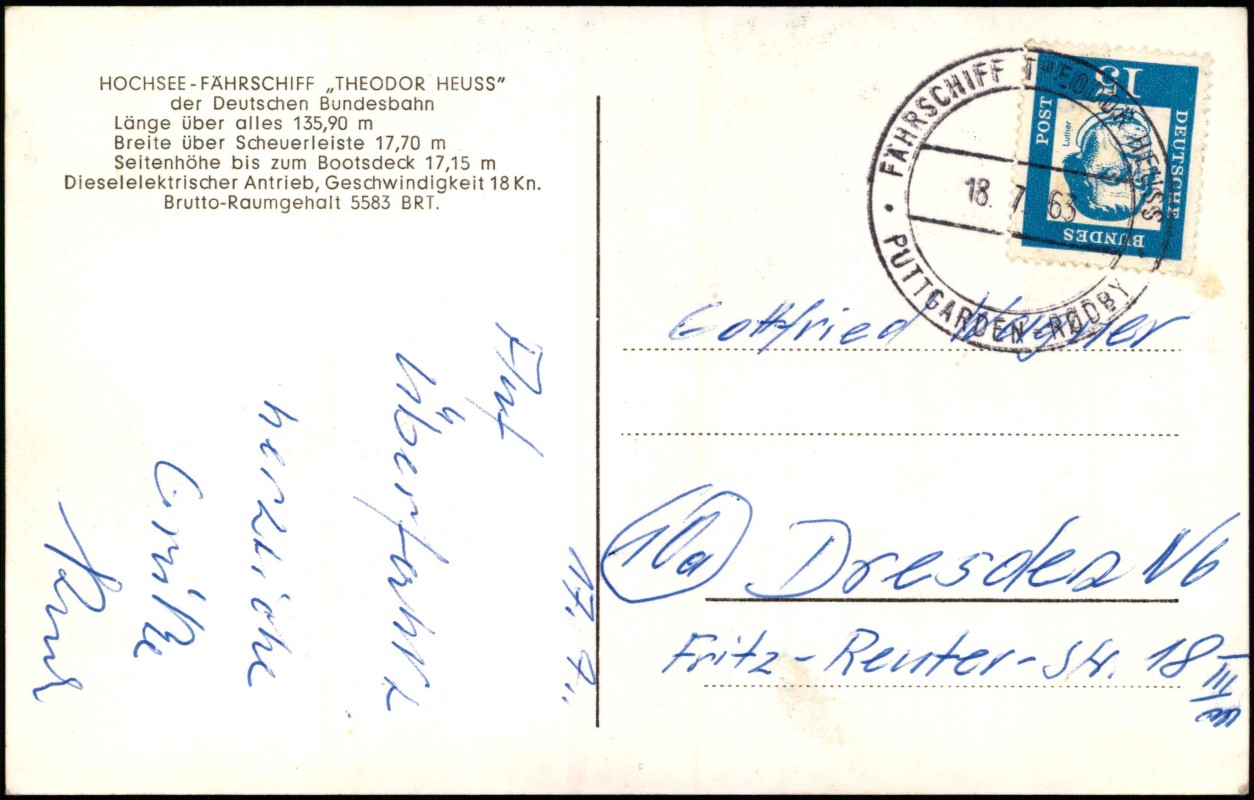 HOCHSEE-FÄHRSCHIFF „THEODOR HEUSS"
der Deutschen Bundesbahn
Länge über alles 135,90 m
Breite über Scheuerleiste 17,70 m
Seitenhöhe bis zum Bootsdeck 17,15 m
Dieselelektrischer Antrieb, Geschwindigkeit 18 Kn.
Brutto-Raumgehalt 5583 BRT.
17. 7.
Auf
Überfahrt
herzliche
Grüße
FÄHRSCHIFF THEODOR HEUSS
18. 7. 63
PUTTGARDEN-RØDBY
15
DEUTSCHE
BUNDES
POST
Luther
Gottfried Wagner
10a Dresden N6
Fritz-Reuter-Str. 18 III